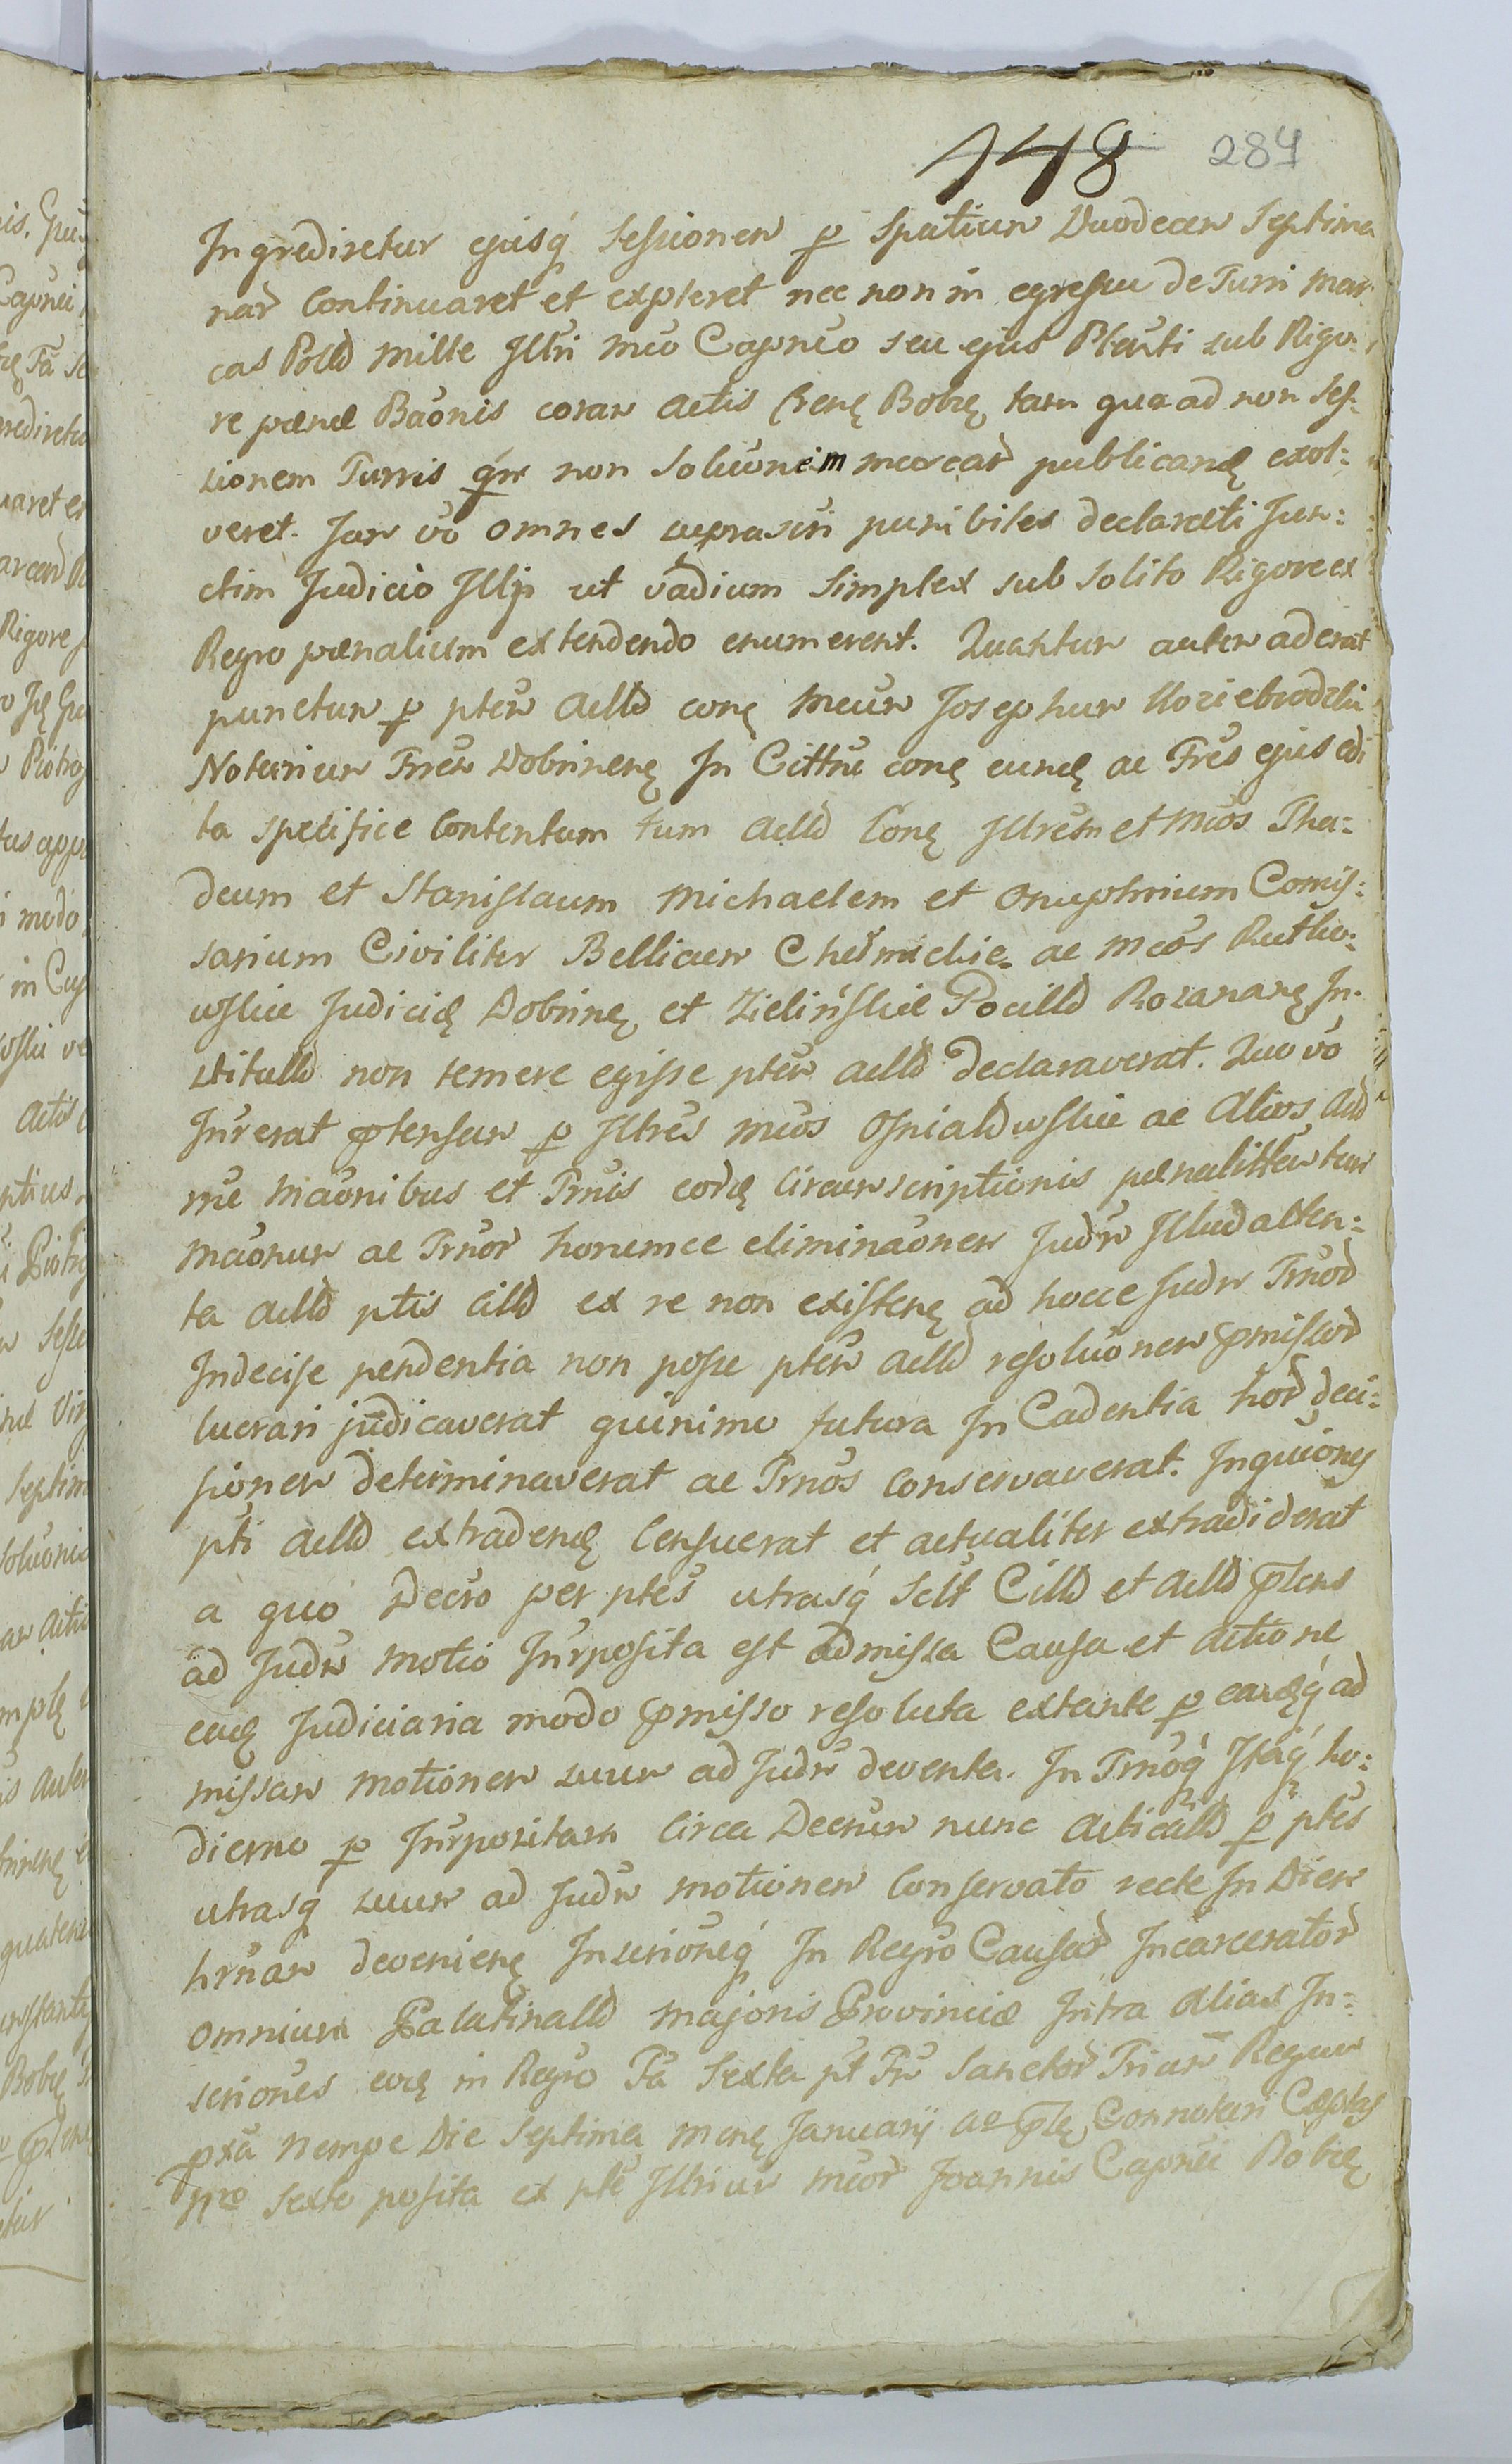 148 284
Ingrediretur ejusq́ Sessionem p Spatium Duodecem Septima
nar̃ Continuaret et expleret nec non in egressu de Turri Mar
cas Polld mille Illri Mco Capneo seu ejus Pleñti sub Rigo:
re pænæ Baõnis coram Actis Crenę Bobrę, tam qua ad non Ses:
sionem Turris q́m non Soluõnem mercar̃ publicandę exol:
veret. Jam võ omnes suprascri punibiles declarati Jun:
ctim Judicio Illp ut vadium Simplex sub solito Rigore ex
Regro pænalium extendendo enumerent. Quantum autem aderat
punctum p ptem Aclld conę Mcum Josephum
Notarium Trrem Dobrinenę In Citt̃ne conę eundę ac Fres ejus edi
ta specifice Contentum tum Aclld Conę Illrem et Mcos Tha:
deum et Stanislaum Michaelem et Onuphrium Comis:
sarium Civiliter Bellicum Chełmickie ac Mcos Rutko:
wskie Judicię Dobrinę, et Zielińskie Pocilld Rozananę In:
stitulld non temere egisse ptem aclld declaraverat. Quo võ
Inrerat ptensum p Illres Mcos Osniałdowskie ac Alios Add
me Maõnibus et Trnis eordę Circumscriptionis pænalitt̃em tum
Maõnum ac Trnor̃ horumce eliminaõnem Judm Illud atten:
ta aclld ptis cilld ex re non existenę ad hocce Judm Trnor̃
Indecise pendentia non posse ptem aclld resoluõnem pmissor̃
lucrari judicaverat quinimo futura In Cadentia hor̃ deci:
sionem determinaverat ac Trnos Conservaverat. Inquiõnes
pti aclld extradendę Censuerat et actualiter extradiderat
a quo Decro per ptes utrasq́ Sclt Cilld et Aclld ptens
ad Judm Motio Inrposita est admissa Causa et Actione
eadę Judiciaria modo pmisso resoluta extante p eandęq́ ad
missam Motionem suum ad Judm deventa. In Trnoq́ Itaq́ ho:
dierno p Inrpositam Circa Decrum nunc Acticalld p ptes
utrasq́ suum ad Judm motionem Conservato recte In Diem
hrnam devenienę Inseriõneq́ In Regro Causar̃ Incarcerator̃
omnium Palatinalld Majoris Provinciæ Intra Alias In:
seriones eodę in Regro Fa Sexta pt Fm Sanctor̃ Trium Regum
pxa nempe Die Septima Menę Januarij Ao ptę Connotari Cæptas
Nro Sexto posita ex pte Illrium Mcor̃ Joannis Capnei Bobrę